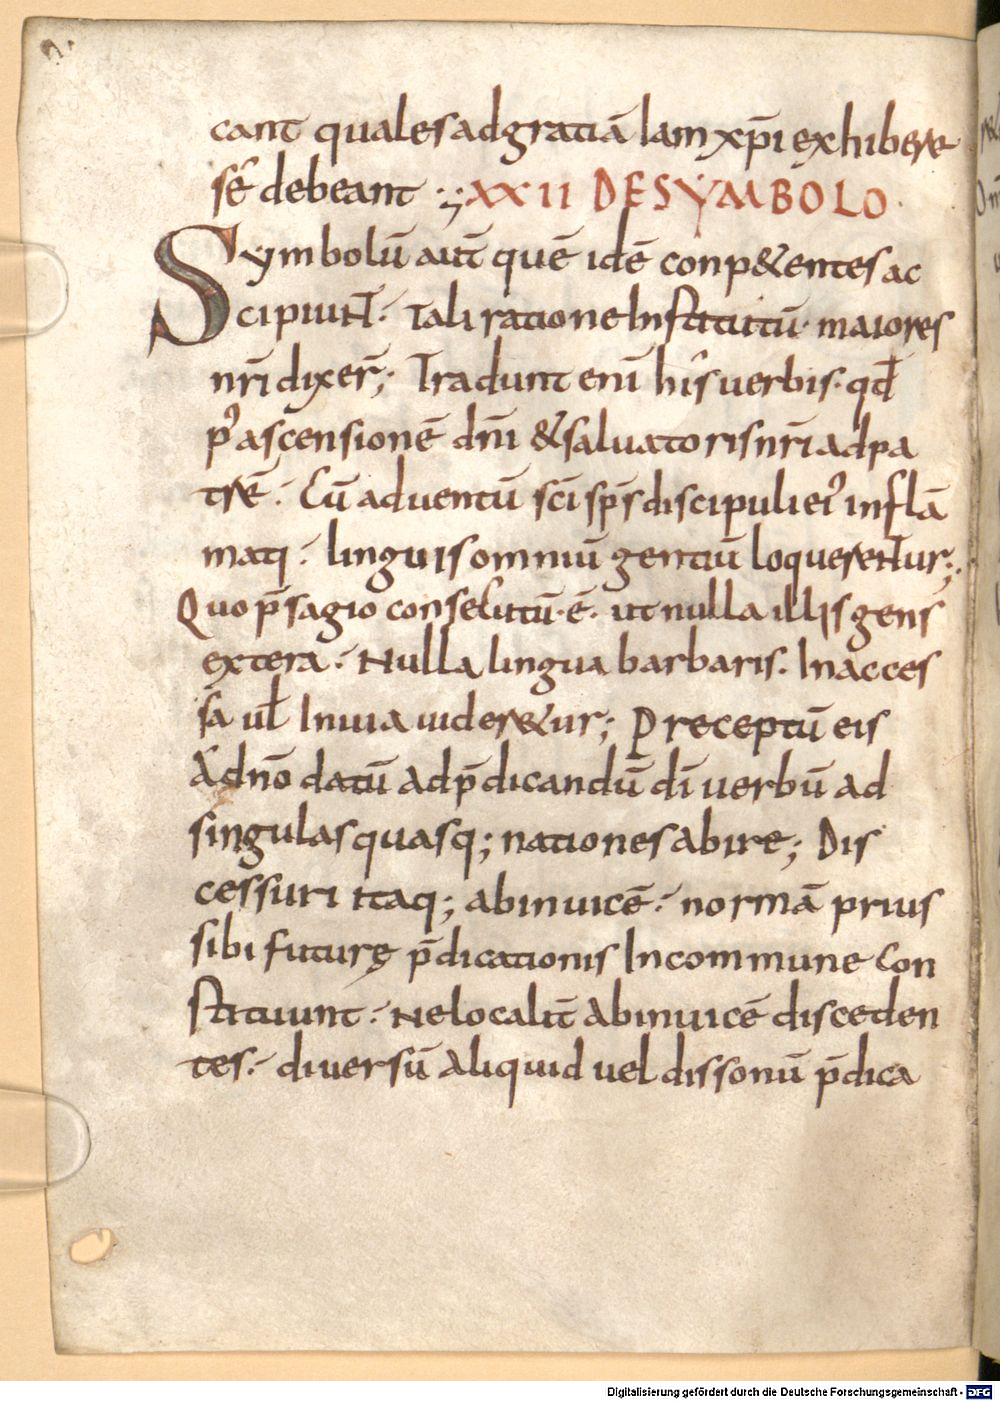 cant quales ad gratiā Iam xp̄i exhibere
sē debeant ·,; XXII DE SYMBOLO ·
Symbolū aut̄ quē idē conp&entes ac
cipiuNt̄ · Tali ratione Institutū · maiores
nr̄i dixer̄; Tradunt enī his uerbis · qd̄
p᾽ ascensionē dn̄i & saluatoris nr̄i ad pa
trē · Cū aduentū sc̄i sp̄s discipuli ei᾽ inflā
mati · linguis omniū gentiū loquereNtur;
Quo p̄sagio consecutū · ē · ut nulla illis gens
extera · Nulla lingua barbaris · Inacces
sa ul̄ Inuia uider&ur; Preceptū eis
Adn̄o datū ad p̄dicandū dī uerbū ad
singulas quasq; nationes abire; Dis
cessuri Itaq; abinuicē · normā prius
sibi futurę p̄dicationis In commune Con
stituunt · Ne localit̄ Abinuicē disceden
tes · diuersū Aliquid uel dissonū p̄dica
Digitalisierung gefördert durch die Deutsche Forschungsgemeinschaft - DFG